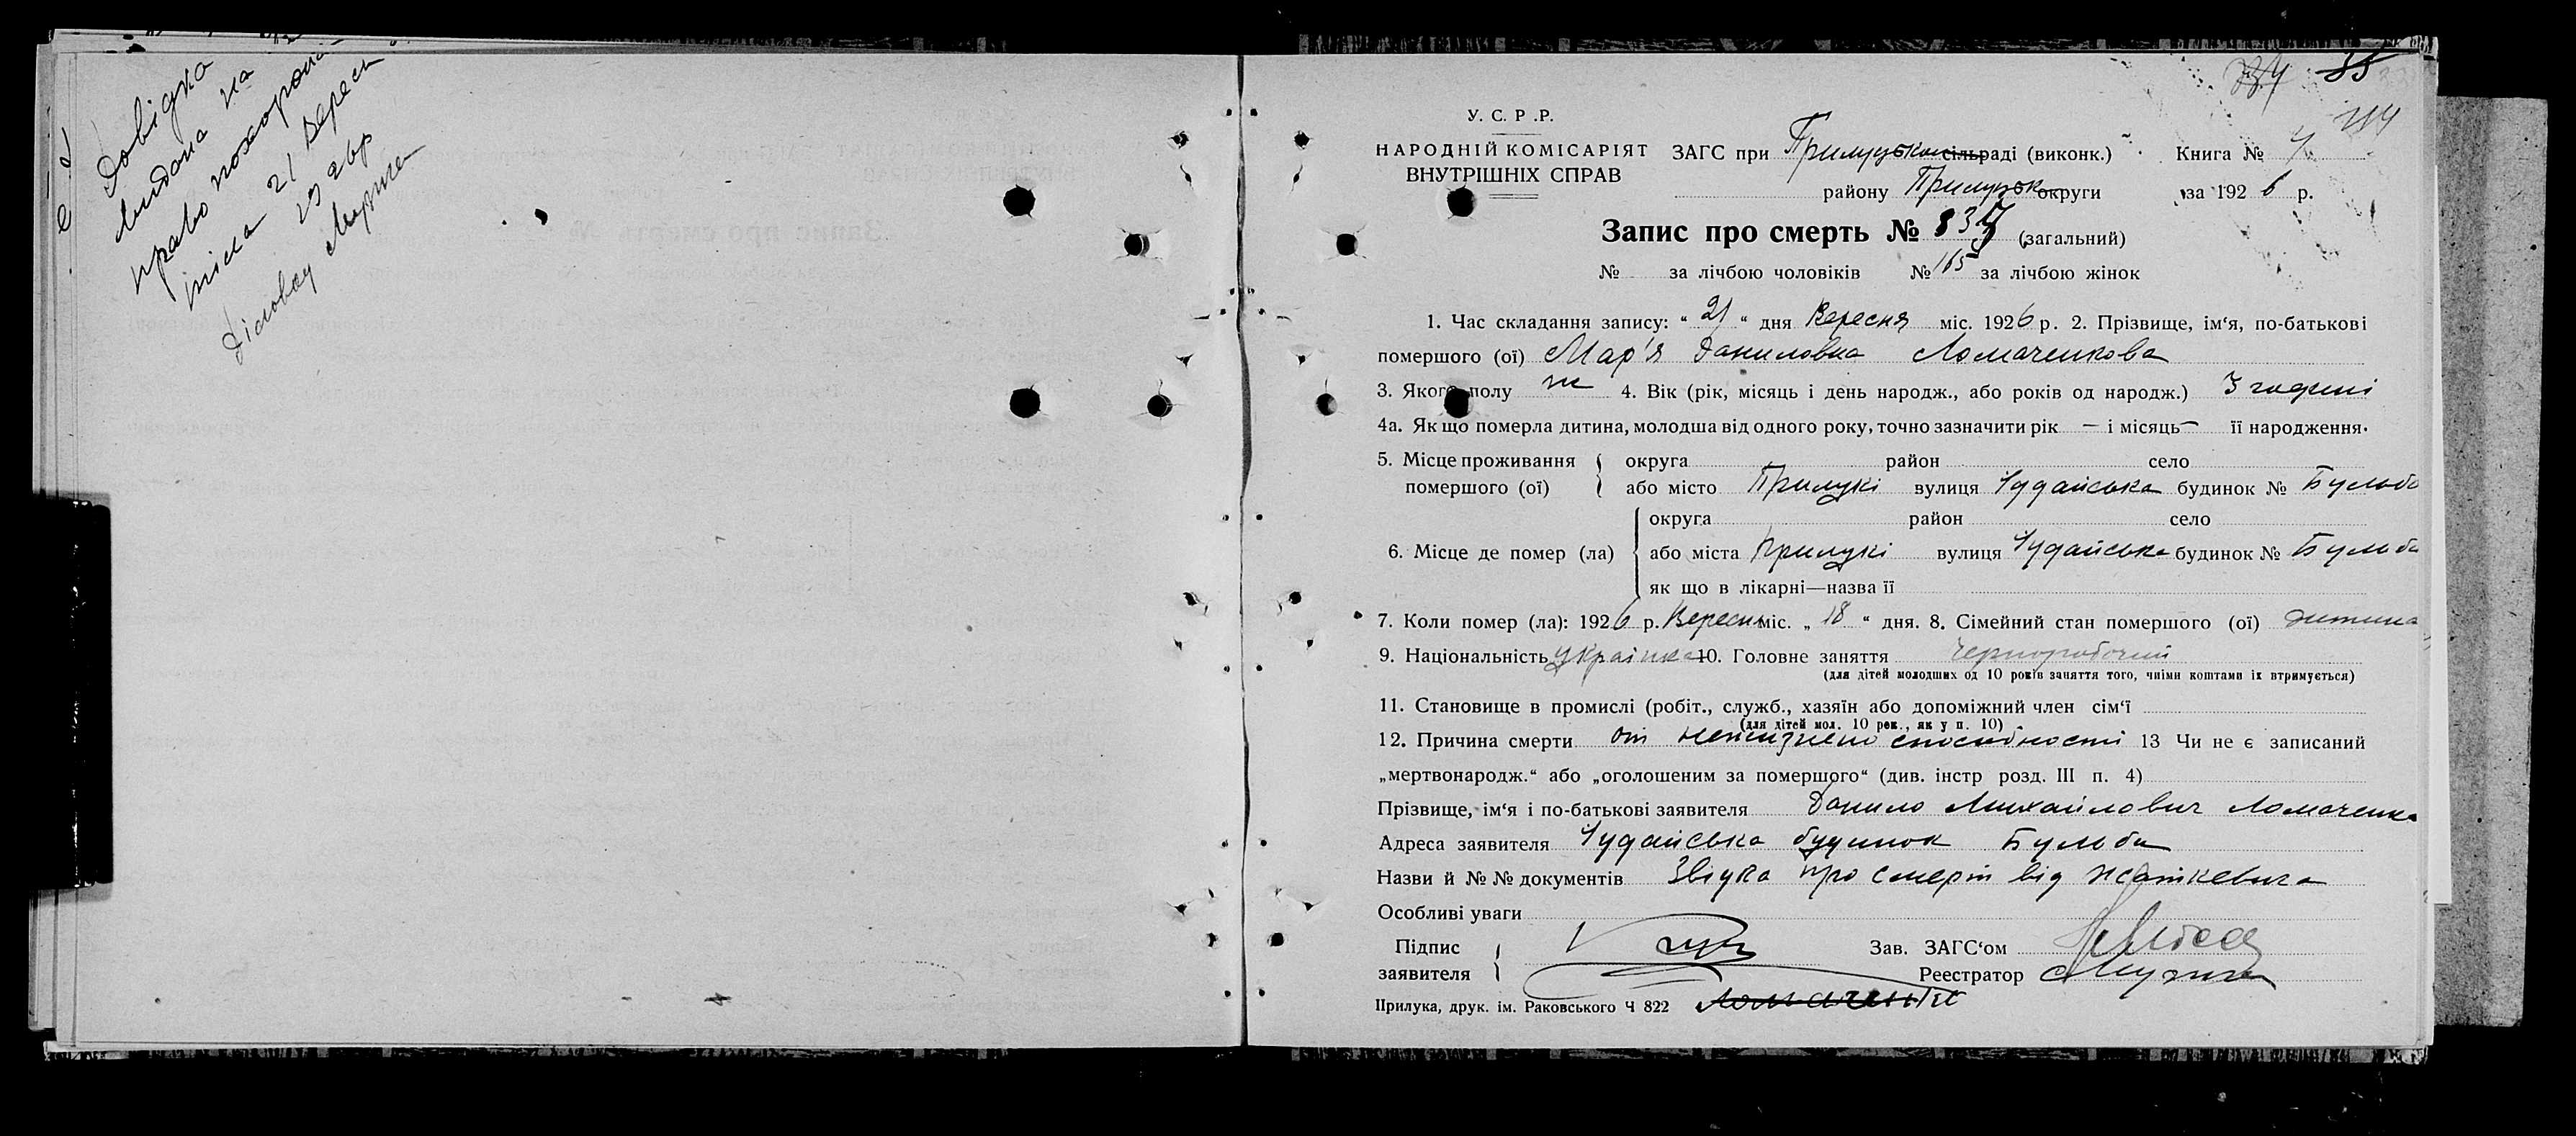 Довідка
видана на
право похорона
тіла 21 Вересн
1926 р
Діловод
35
У. С. Р .Р.
НАРОДНІЙ КОМІСАРІЯТ
ВНУТРІШНІХ СПРАВ
ЗАГС при Прилуцьком сільраді (виконк.) Книга №
району Прилуцьк округи за 1926 р.
Запис про смерть № 837 (загальний)
№ за лічбою чоловіків № 165 за лічбою жінок
1. Час складання запису: “ 21 “ дня Вересня міс. 1926 р. 2. Прізвище, ім‘я, по-батькові
помершого (ої) Мар'я Даниловна Ломаченкова
3. Якого полу ж 4. Вік (рік, місяць і день народж., або років од народж.) 3 годині
4а. Як що померла дитина, молодша від одного року, точно зазначити рік — і місяць — її народження.
5. Місце проживання помершого (ої) округа район село
або місто Прилукі вулиця Чудайська будинок № Бульба
6. Місце де помер (ла) округа район село
або міста Прилукі вулиця Чудайська будинок № Бульба
як що в лікарні—назва її
7. Коли помер (ла): 1926 р. Вересня міс. „ 18 “ дня. 8. Сімейний стан помершого (ої) дитина
9. Національність українка 10. Головне заняття Чернорабочий
(для дітей молодших од 10 років заняття того, чиїми коштами їх втримується)
11. Становище в промислі (робіт., служб., хазяїн або допоміжний член сім‘ї
(для дітей мол. 10 рок., як у п. 10)
12. Причина смерти от способності 13 Чи не є записаний
„мертвонародж.“ або „оголошеним за помершого“ (див. інстр розд. III п. 4)
Прізвище, ім‘я і по-батькові заявителя Данило Михайлович Ломаченко
Адреса заявителя Чудайська будинок Бульби
Назви й № № документів Звідка про смерт від Жаткевича
Особливі уваги
Підпис заявителя
Зав. ЗАГС‘ом
Реестратор
Прилука, друк. ім. Раковського Ч 822 Ломаченко